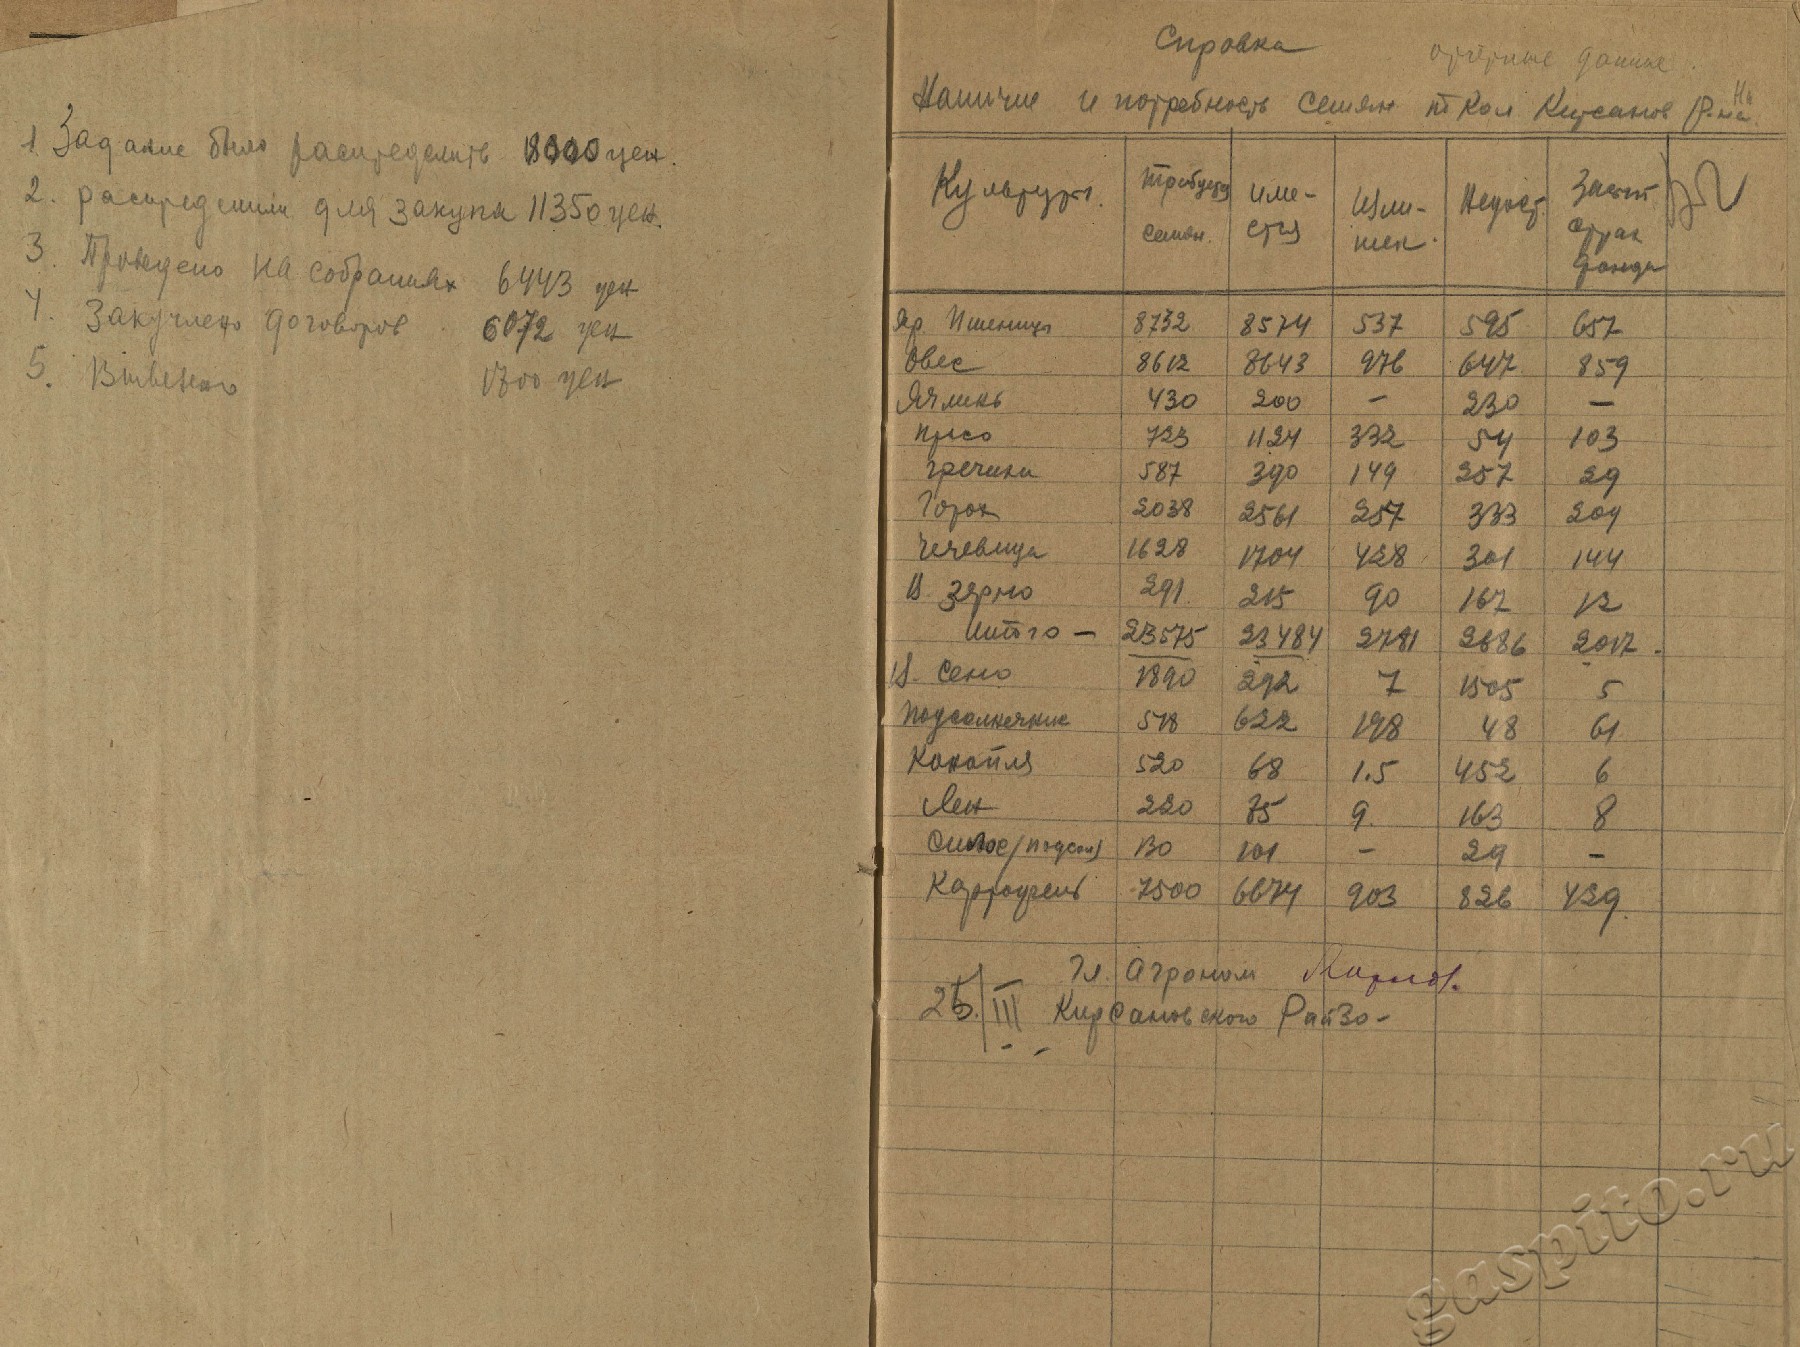 1. Задание было распределить 18000 цен.
2. распределили для закупа 11350 цен.
3. Проведено на собраниях 6443 цен
4. Заключено договоров 6072 цен
5. Вывезено 1700 цен
Справка
отчетные данные.
Наличие и потребность семян по Кол Кирсанов Р-на
Культуры. Требуется семян. име- ется изли- шек. Недост. Засып страх фонда
Яр. Пшеница 8732 8574 537 595 657
Овес 8612 8643 976 647 859
Ячмень 430 200 — 230 —
просо 723 1124 332 54 103
гречиха 587 390 149 257 29
Горох 2038 2561 257 333 204
Чечевица 1628 1704 428 301 144
В. зерно 291 215 90 167 12
Итого — 23575 23484 2781 2686 2017.
В. Сено 1890 292 7 1505 5
Подсолнечник 518 622 198 48 61
Конопля 520 68 1.5 452 6
Лен 220 75 9. 163 8
Силос (подсол) 130 101 — 29 —
Картофель 7500 6674 903 826 429.
Гл. Агроном
25/III Кирсановского РайЗо-
gaspito.ru